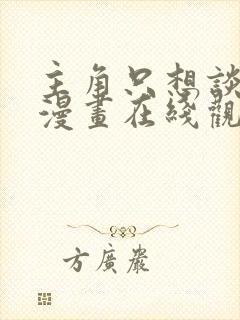 主角只想談
漫畫在綫觀
方廣嚴